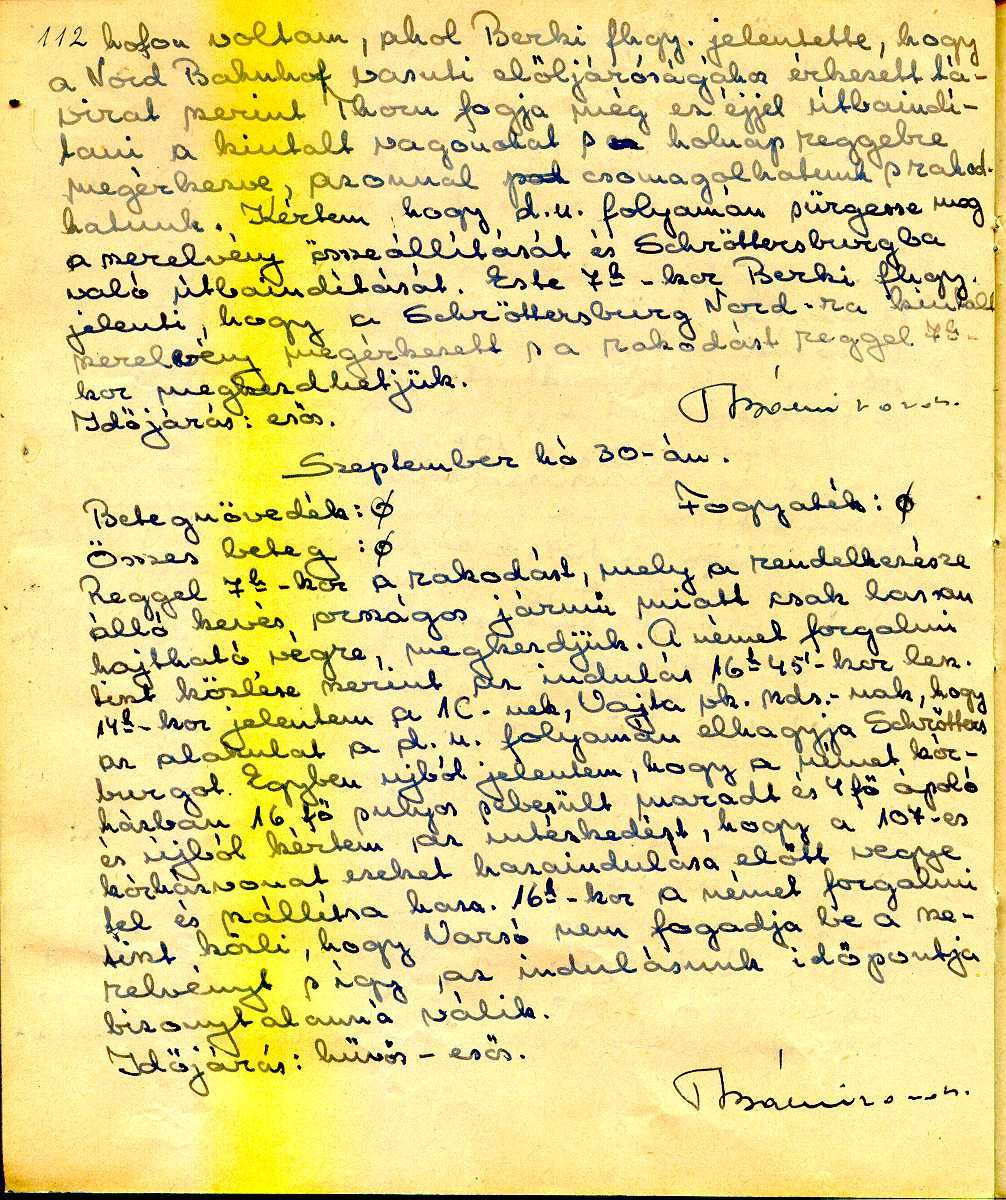 112 hofon voltam, ahol Berki fhgy. jelentette, hogy
a Nord Bahnhof vasuti elöljáróságához érkezett tá-
virat szerint Thorn fogja még ez éjjel útbaindí-
tani a kiutalt vagónokat s holnap reggelre
megérkezve, azonnal csomagolhatunk s rakod-
hatunk. Kértem, hogy d.u. folyamán sürgesse meg
a szerelvény összeállítását és Schröttersburgba
való útbaindítását. Este 7h-kor Berki fhgy.
jelenti, hogy a Schröttersburg Nord-ra kiutalt
szerelvény megérkezett s a rakodást reggel 7h-
kor megkezdhetjük.
Időjárás: esős.
Szeptember hó 30-án.
Betegnövedék: ø Fogyaték: ø
Összes beteg : ø
Reggel 7h-kor a rakodást, mely a rendelkezésre
álló kevés országos jármü miatt csak lassan
hajtható végre, megkezdjük. A német forgalmi
tiszt közlése szerint az indulás 16h45'-kor lesz.
14h-kor jelentem a IC-nek, Vajta vk. szds.-nak, hogy
az alakulat a d.u. folyamán elhagyja Schrötters
burgot. Egyben ujból jelentem, hogy a német kór-
házban 16 fő sulyos sebesült maradt és 4 fő ápoló
és újból kértem az intézkedést, hogy a 107-es
kórházvonat ezeket hazaindulása előtt vegye
fel és szállítsa haza. 16h-kor a német forgalmi
tiszt közli, hogy Varsó nem fogadja be a sze-
relvényt s így az indulásunk időpontja
bizonytalanná válik.
Időjárás: hüvös - esős.